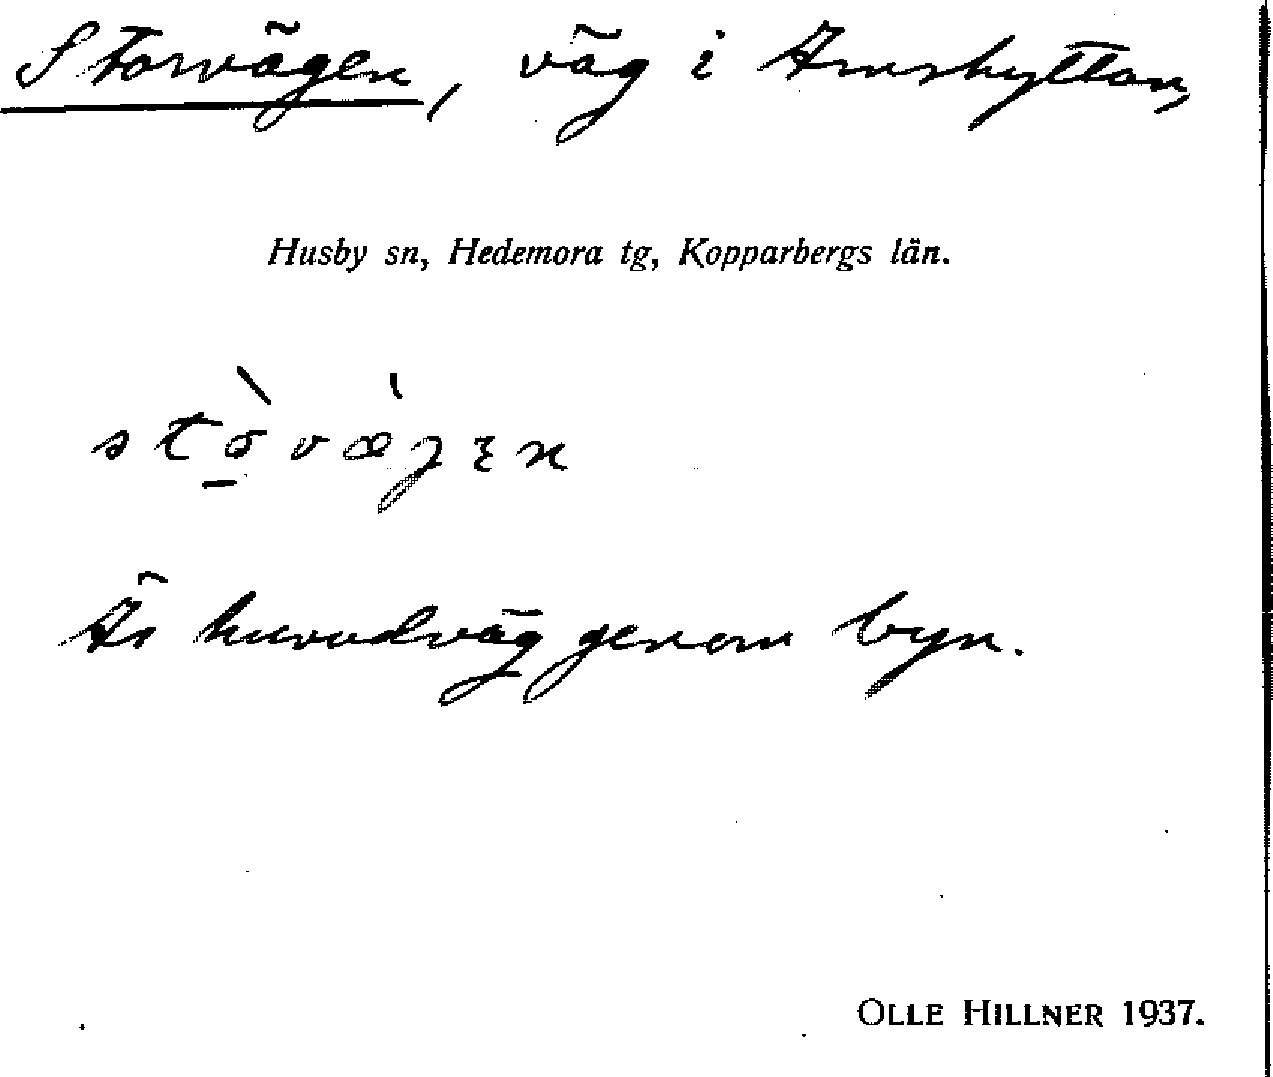 Storvägen, väg i Amshyttan,
Husby sn, Hedemora tg, Kopparbergs län.
Är huvudväg genom byn.
OLLE HILLNER 1937.